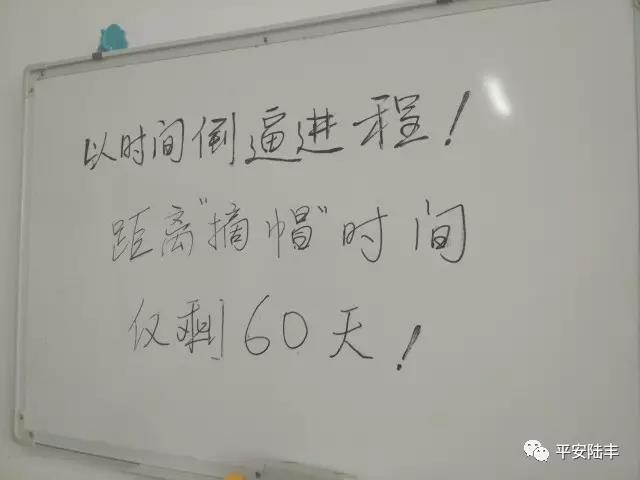 以时间倒逼进程！
距离"摘帽"时间
仅剩60天！
平安陆丰